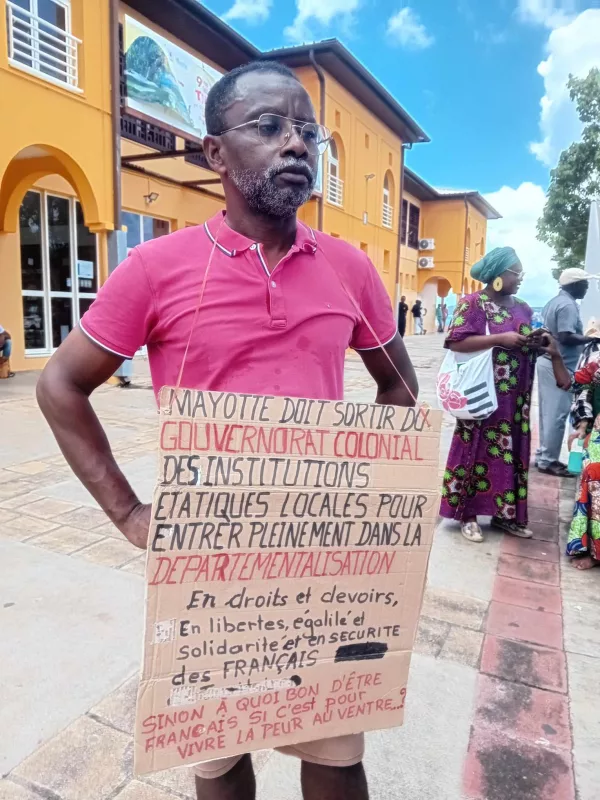 MAYOTTE DOIT SORTIR DU
GOUVERNORAT COLONIAL
DES INSTITUTIONS
ÉTATIQUES LOCALES POUR
ENTRER PLEINEMENT DANS LA
DEPARTEMENTALISATION
En droits et devoirs,
En libertes, égalité et
solidarité et en SECURITE
des FRANÇAIS
SINON À QUOI BON D'ÊTRE
FRANCAIS SI C'EST POUR
VIVRE LA PEUR AU VENTRE..?